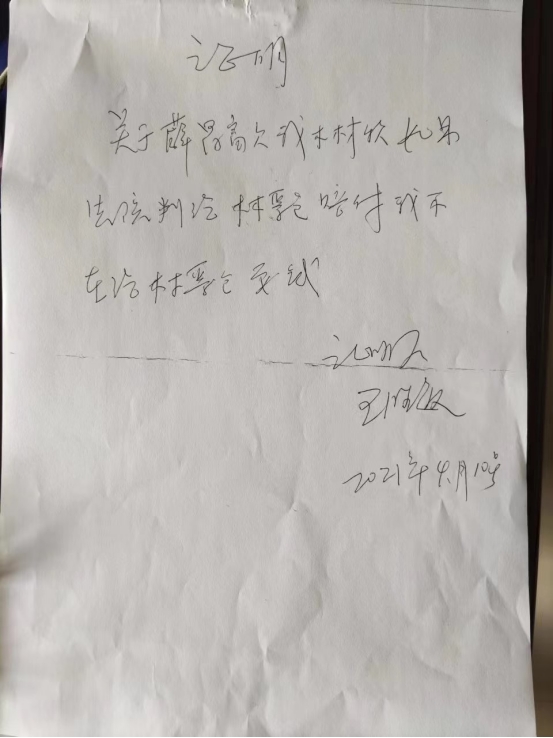 证明
关于薛昌高欠我木材款如果
法院判给林 赔付我不
在给林 要钱
证明人
王胜
2021年4月10号